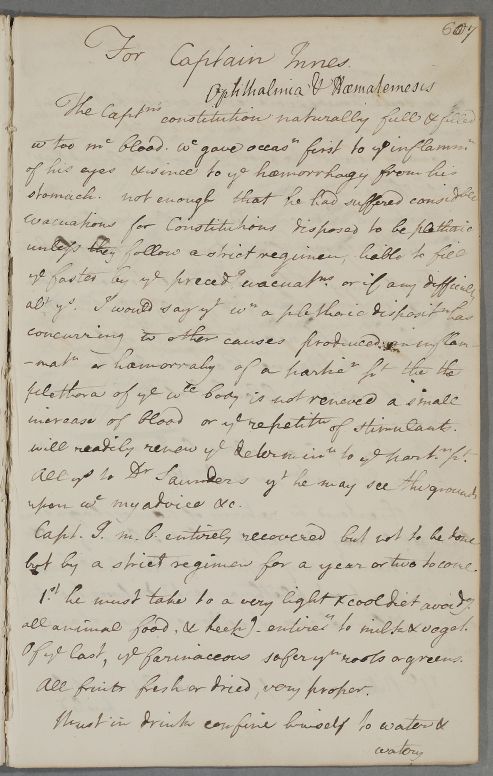 607
For Captain Innes.
Ophthalmia & Hæmatemesis
The Captns constitution naturally full & filled
w too mc blood. wc gave occasn first to ye inflammn
of his eyes & since to ye hæmorrhagy from his
stomach. not enough that he had suffered considble
evacuations for Constitutions disposed to be plethoic
unless they follow a strict regimen, liable to fill
ye faster by ye precedg evacuatns. or if any difficulty
abt ys. I would say yt wn a plethoic dispositn has
concurring to other causes produced an inflam-
-matn or hæmorrahy of a particr pt tho the
plethora of ye wle body is not renewed a small
increase of blood or ye repetitn of stimulant.
will readily renew ye determinn to ye partr pt.
All ys to Dr Saunders yt he may see the grounds
upon wc my advice &c.
Capt. I. m. b. entirely recovered but not to be done
but by a strict regimen for a year or two to come.
1st he must take to a very light & cool diet avoidg
all animal food, & keepg entirely to milk & veget.
Of ye last, ye farinaceous safer yn roots or greens.
All fruits fresh or dried, very proper.
Must in drink confine himself to water &
watery